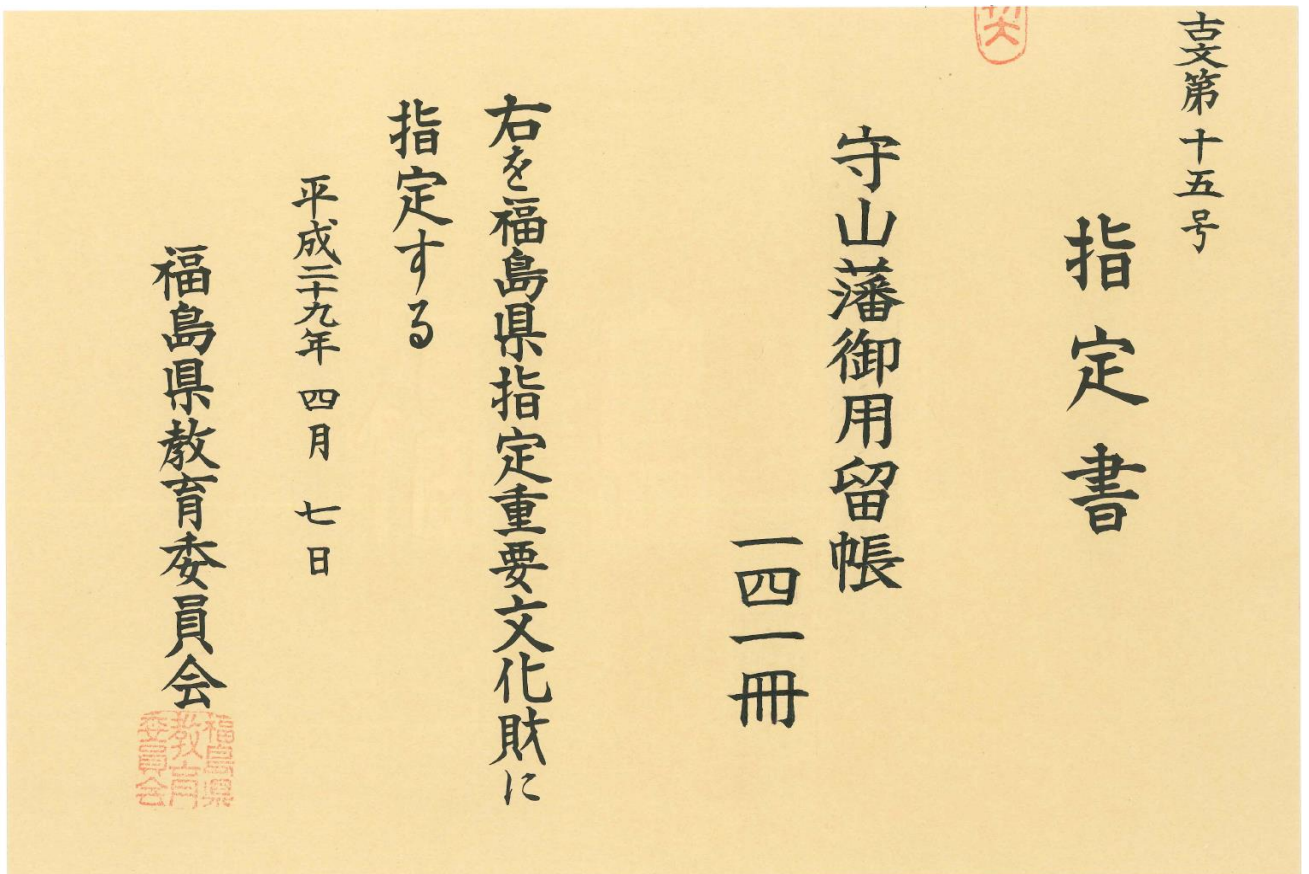 古文第十五号
指定書
守山藩御用留帳
一四一冊
右を福島県指定重要文化財に
指定する
平成二十九年 四月 七日
福島県教育委員会
福島県
教育
委員会